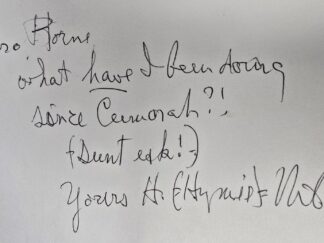 Horne
what have I been doing
since Cumorah?!
(Dunt esk!)
Yours H. (Hymie)= N